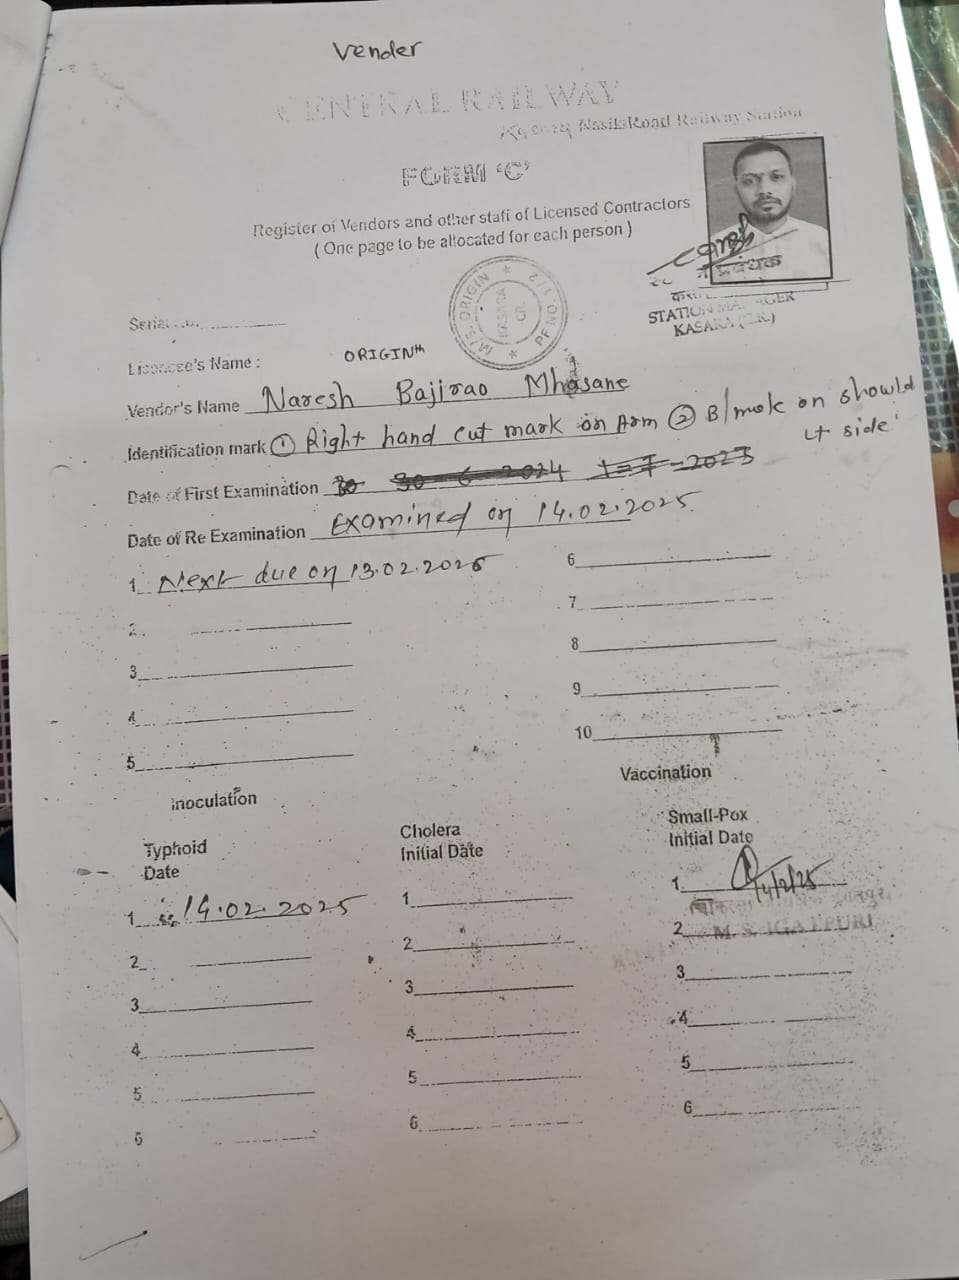 Vender
CENTRAL RAILWAY
Nasik Road Railway Station
FORM 'C'
Register of Vendors and other staff of Licensed Contractors
( One page to be allocated for each person )
STATION MANAGER
KASARA (C.R.)
M/S. ORIGIN * PF NO. 1/2 *
KASARA
CR.
Serial No.
Licencee's Name : ORIGIN
Vendor's Name Naresh Bajirao Mhasane
Identification mark ① Right hand cut mark on Arm ② B/mark on should
Lt side
Date of First Examination 30 30-6-2024 1-7-2023
Date of Re Examination Examined on 14.02.2025
1 Next due on 13.02.2026
6
2
7
3
8
4
9
5
10
Inoculation
Vaccination
Typhoid
Date
Cholera
Initial Date
Small-Pox
Initial Date
1 14.02.2025
1
1 14/2/25
2
2
2 M. S. IGATPURI
3
3
3
4
4
4
5
5
5
6
6
6